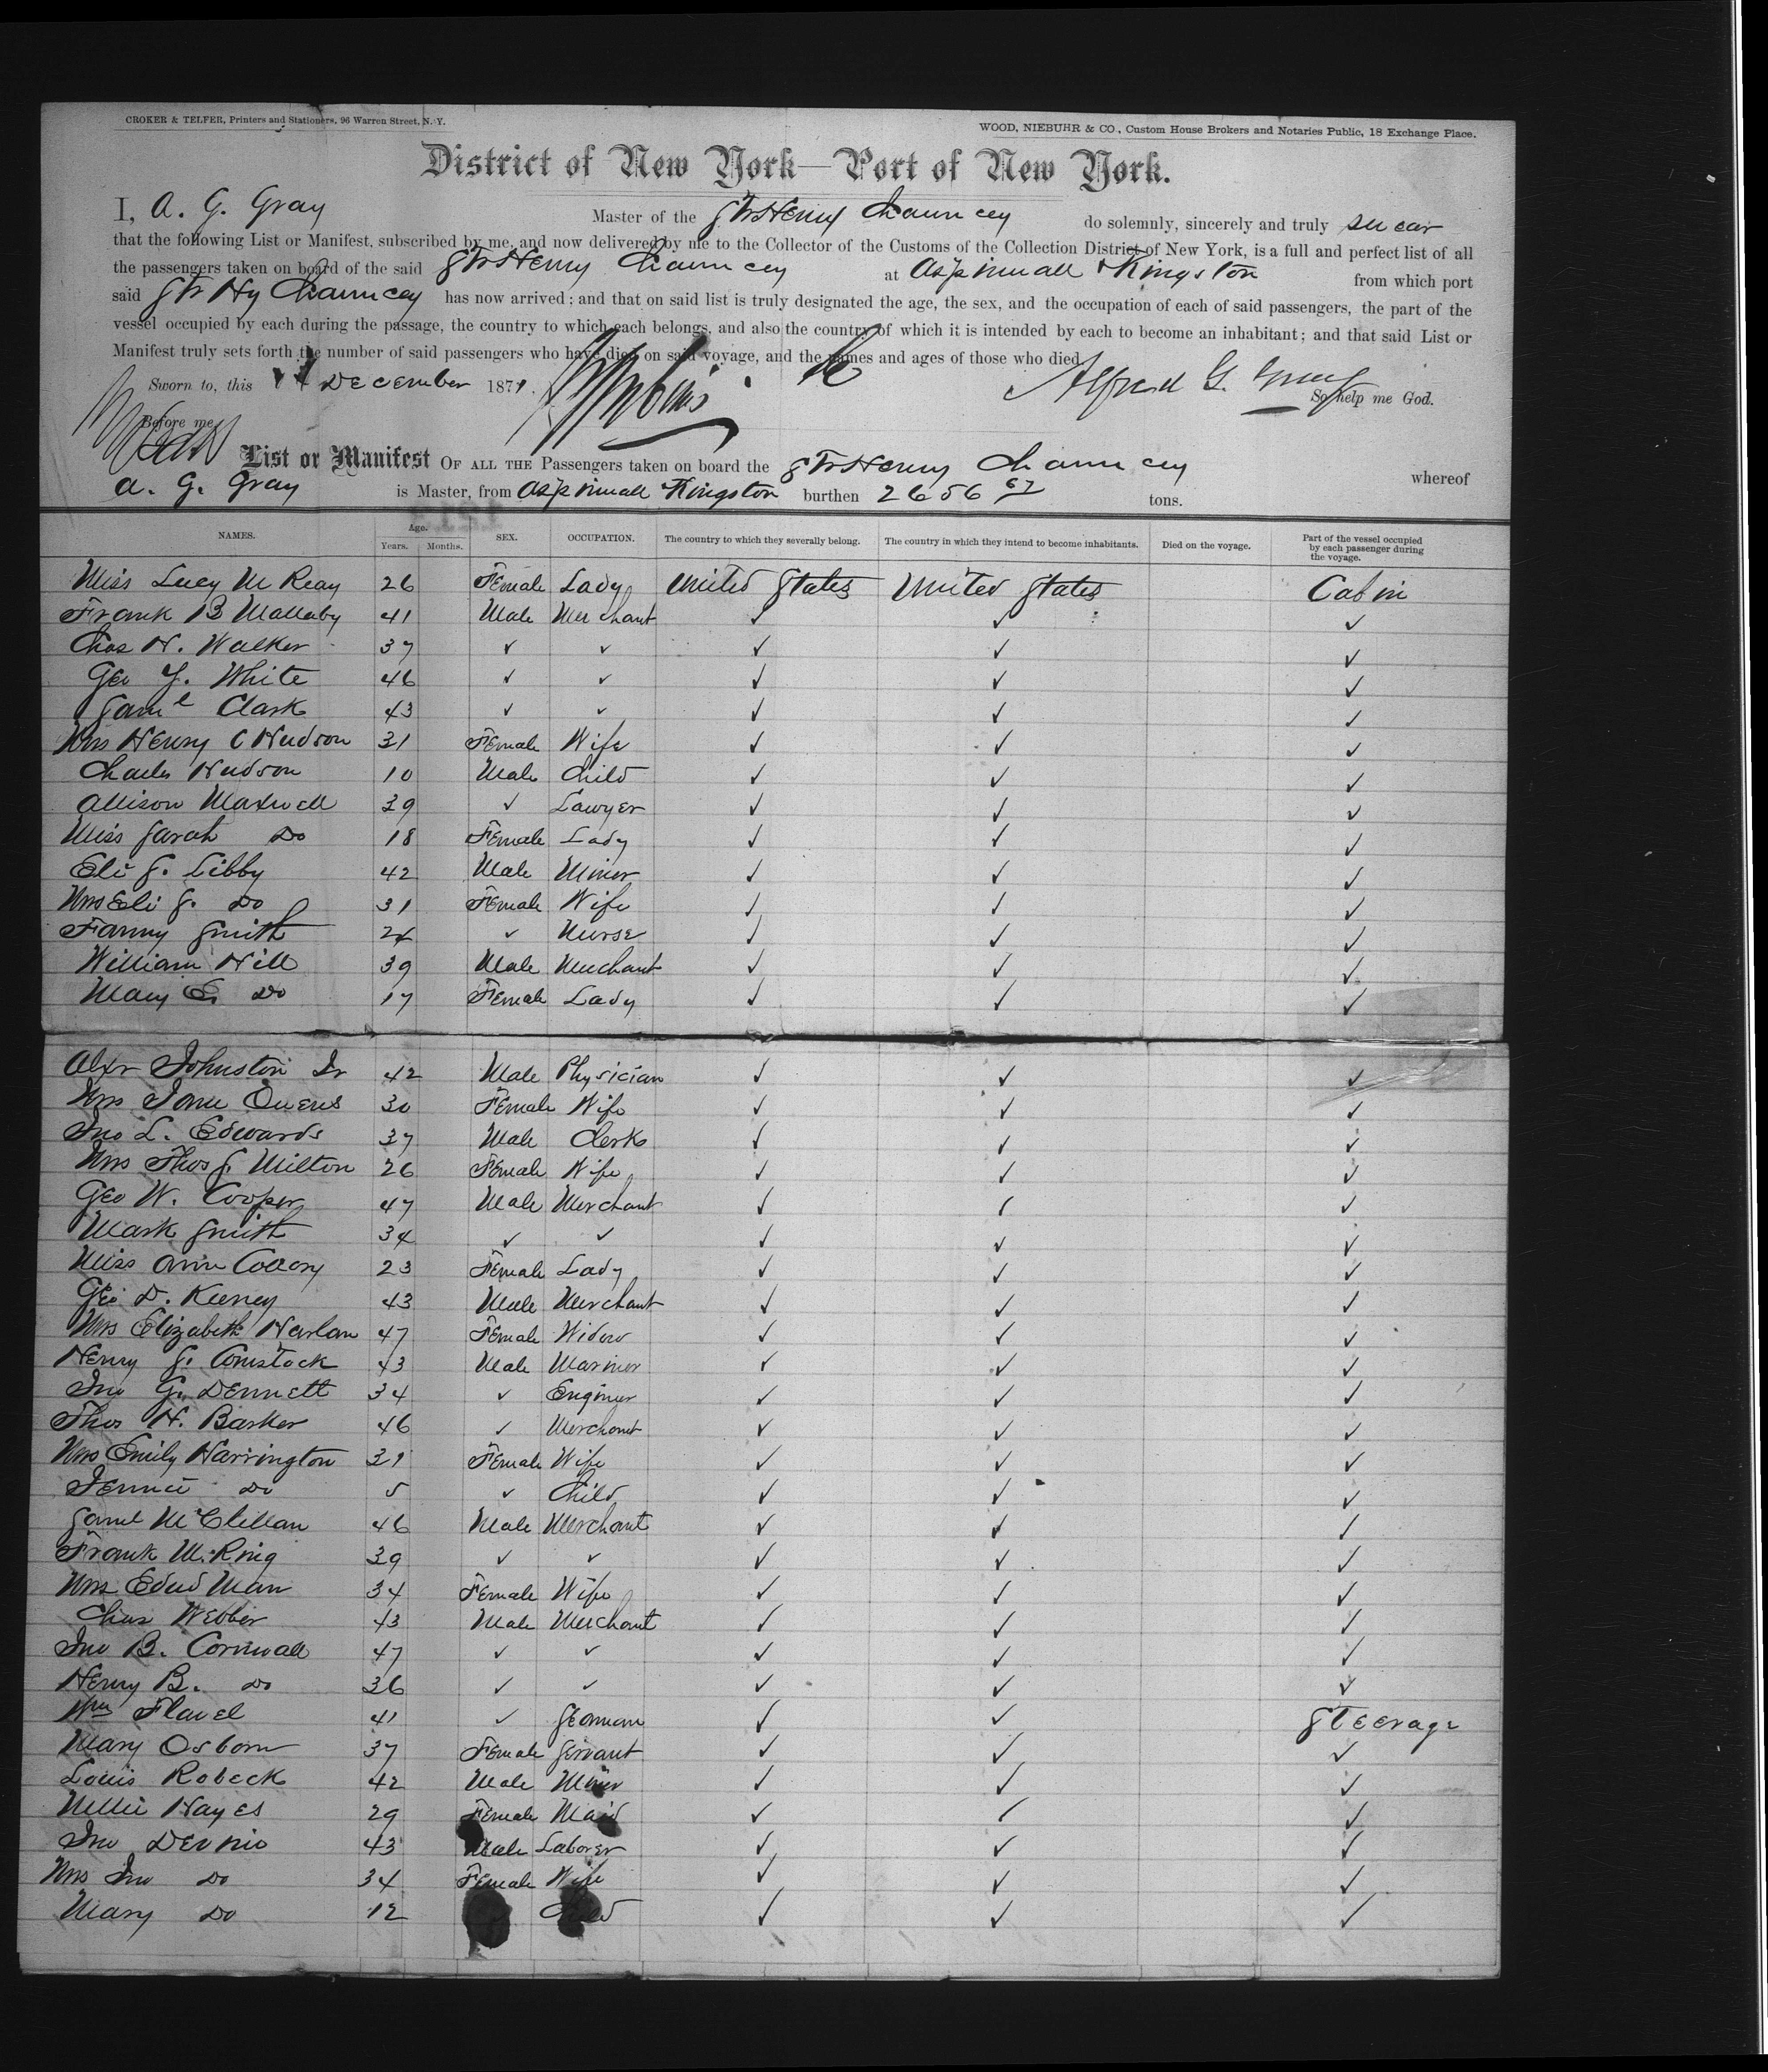 CROKER & TELFER, Printers and Stationers, 96 Warren Street, N. Y.
WOOD, NIEBUHR & CO., Custom House Brokers and Notaries Public, 18 Exchange Place.
District of New York—Port of New York.
I, A. G. Gray Master of the Str Henry Chauncey do solemnly, sincerely and truly swear
that the following List or Manifest, subscribed by me, and now delivered by me to the Collector of the Customs of the Collection District of New York, is a full and perfect list of all
the passengers taken on board of the said Str Henry Chauncey at Aspinwall & Kingston from which port
said Str Hy Chauncey has now arrived; and that on said list is truly designated the age, the sex, and the occupation of each of said passengers, the part of the
vessel occupied by each during the passage, the country to which each belongs, and also the country of which it is intended by each to become an inhabitant; and that said List or
Manifest truly sets forth the number of said passengers who have died on said voyage, and the names and ages of those who died.
Sworn to, this December 187 Alfred G. Gray So help me God.
Before me
List or Manifest OF ALL THE Passengers taken on board the Str Henry Chauncey whereof
A. G. Gray is Master, from Aspinwall & Kingston burthen 2656 67 tons.
NAMES. Age. Years. Months. SEX. OCCUPATION. The country to which they severally belong. The country in which they intend to become inhabitants. Died on the voyage. Part of the vessel occupied by each passenger during the voyage.
Miss Lucy M Reay 26 Female Lady United States United States Cabin
Frank B Mallaby 41 Male Merchant ✓ ✓ ✓
Chas H. Walker 37 ✓ ✓ ✓ ✓ ✓
Geo Y. White 46 ✓ ✓ ✓ ✓ ✓
Saml Clark 43 ✓ ✓ ✓ ✓ ✓
Mrs Henry C Hudson 31 Female Wife ✓ ✓ ✓
Charles Hudson 10 Male Child ✓ ✓ ✓
Allison Maxwell 39 ✓ Lawyer ✓ ✓ ✓
Miss Sarah Do 18 Female Lady ✓ ✓ ✓
Eli S. Libby 42 Male Miner ✓ ✓ ✓
Mrs Eli S. Do 31 Female Wife ✓ ✓ ✓
Fanny Smith 24 ✓ Nurse ✓ ✓ ✓
William Hill 39 Male Merchant ✓ ✓ ✓
Mary E. Do 17 Female Lady ✓ ✓ ✓
Alxr Johnston Jr 42 Male Physician ✓ ✓ ✓
Mrs Jane Owens 30 Female Wife ✓ ✓ ✓
Jno L. Edwards 37 Male Clerk ✓ ✓ ✓
Mrs Thos S. Milton 26 Female Wife ✓ ✓ ✓
Geo W. Cooper 47 Male Merchant ✓ ✓ ✓
Mark Smith 34 ✓ ✓ ✓ ✓ ✓
Miss Ann 23 Female Lady ✓ ✓ ✓
Geo D. Keeney 43 Male Merchant ✓ ✓ ✓
Mrs Elizabeth Harlan 47 Female Widow ✓ ✓ ✓
Henry S. Comstock 43 Male Mariner ✓ ✓ ✓
Jno G. Dennett 34 ✓ Engineer ✓ ✓ ✓
Thos H. Barker 46 ✓ Merchant ✓ ✓ ✓
Mrs Emily Harrington 31 Female Wife ✓ ✓ ✓
Jennie Do 5 ✓ Child ✓ ✓ ✓
Saml McClellan 46 Male Merchant ✓ ✓ ✓
Frank M. Ring 39 ✓ ✓ ✓ ✓ ✓
Mrs Edwd Man 34 Female Wife ✓ ✓ ✓
Chas Webber 43 Male Merchant ✓ ✓ ✓
Jno B. Cornwall 47 ✓ ✓ ✓ ✓ ✓
Henry B. Do 36 ✓ ✓ ✓ ✓ ✓
Wm Flavel 41 ✓ Seaman ✓ ✓ Steerage
Mary Osborn 37 Female Servant ✓ ✓ ✓
Louis Robeck 42 Male Miner ✓ ✓ ✓
Nellie Hayes 29 Female Maid ✓ ✓ ✓
Jno Devnio 43 Male Laborer ✓ ✓ ✓
Mrs Jno Do 34 Female Wife ✓ ✓ ✓
Mary Do 12 Child ✓ ✓ ✓